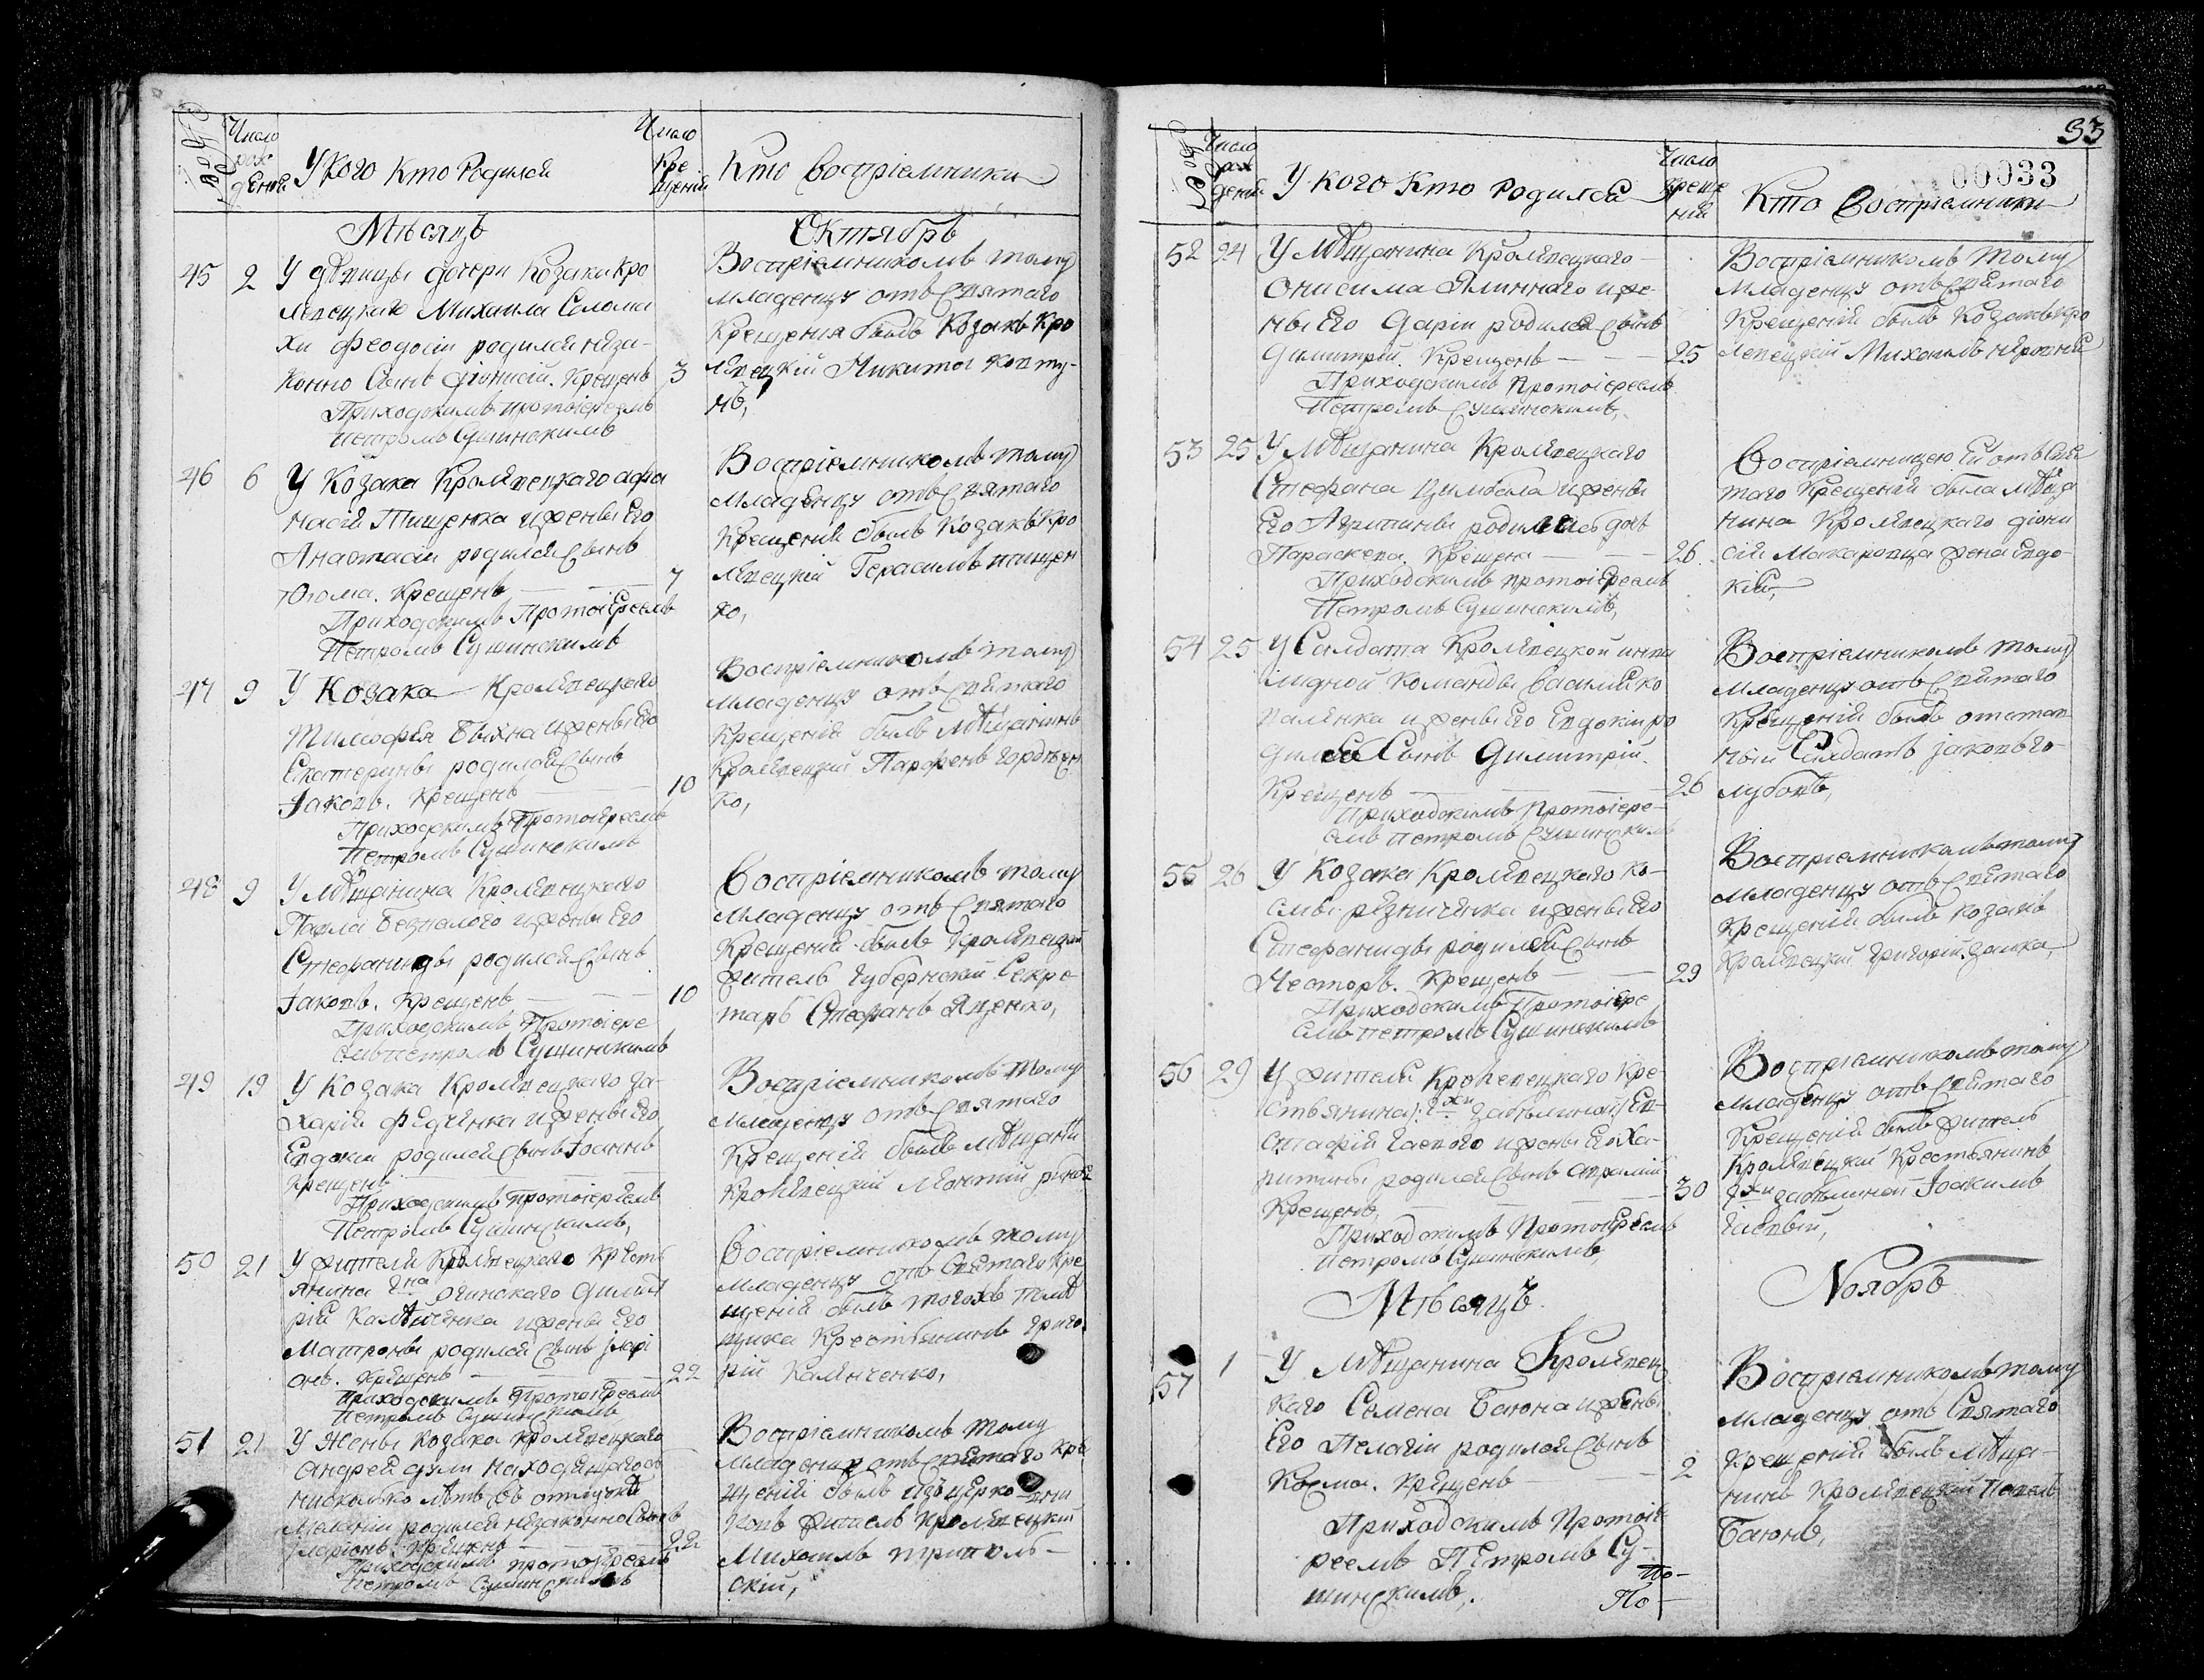 Число рождений
У Кого Кто Родился
Число Крещеній
Кто Воспріемники
Мѣсяцъ
Октябрь
45 2 У дѣвицы дочери Козака Кро
левецкаго Михаила Солома
хи Феодосіи родился неза-
конно Сынъ Діонисій. Крещенъ 3
Приходскимъ протоіереемъ
Петромъ Сушинскимъ
Воспріемникомъ тому
младенцу отъ Святаго
Крещения былъ Козакъ Кро
лѣвецкій Никита Ковту-
нъ,
46 6 У Козака Кролѣвецкаго Афа
насія Тищенка и жены Его
Анастасіи родился Сынъ
Фома. Крещенъ 7
Приходскимъ Протоіереемъ
Петромъ Сушинскимъ
Воспріемникомъ тому
младенцу отъ Святаго
Крещенія былъ Козакъ Кро
лѣвецкій Герасимъ тищен
ко,
47 9 У Козака Кролѣвецкаго
Тимофея Быхна и жены Его
Екатерины родился Сынъ
Іаковъ. Крещенъ 10
Приходскимъ Протоіереемъ
Петромъ Сушинскимъ
Воспріемникомъ тому
младенцу отъ Святаго
Крещенія былъ мѣщанинъ
Кролѣвецкій Парфенъ Гордѣен
ко,
48 9 У мѣщанина Кролѣвецкаго
Павла Безналого и жены Его
Стефаниды родился Сынъ
Іаковъ. Крещенъ 10
Приходскимъ Протоіере
емъ петромъ Сушинскимъ
Воспріемникомъ тому
младенцу отъ Святаго
Крещенія былъ Кролѣвецкій
житель Губернскій Секре-
тарь Стефанъ Яценко,
49 19 У Козака Кролѣвецкаго За-
харія Федченка и жены Его
Евдокіи родился Сынъ Іоаннъ
Крещенъ
Приходскимъ протоіереемъ
Петромъ Сушинскимъ,
Воспріемникомъ тому
младенцу отъ Святаго
Крещеній былъ мѣщанинъ
Кролѣвецкій Леонтій
50 21 У жителя Кролѣвецкаго Кресть
янина Огинскаго Димит
рія Камѣнченка и жены Его
Матроны родился Сынъ Іларі
онъ. Крещенъ 22
Приходскимъ Протоіереемъ
Петромъ Сушинскимъ
Воспріемникомъ тому
младенцу отъ Святаго Кре
щенія былъ тогожъ помѣ
щика Крестьянинъ Григо
рій Камѣнченко,
51 21 У Жены Козака Кролѣвецкаго
Андрея находящагось
нисколько лѣтъ въ отлучкѣ
Меланіи родился незаконно Сынъ
Іларіонъ. Крещенъ 22
Приходскимъ протоіереемъ
Петромъ Сушинскимъ
Воспріемникомъ тому
младенцу отъ Святаго Кре
щенія былъ изъ церковни
ковъ житель Кролѣвецкій
Михаилъ триполь-
скій,
33
00033
Число рождений
У Кого Кто Родился
Число крещеній
Кто Воспріемники
52 24 У Мѣщанина Кролѣвецкаго
Онисима Ялиннаго и же-
ны Его Даріи родился Сынъ
Димитрій. Крещенъ 25
Приходскимъ Протоіереемъ
Петромъ Сушинскимъ,
Воспріемникомъ тому
младенцу отъ Святаго
Крещеній былъ Козакъ Кро
левецкій Михаилъ
53 25 У Мѣщанина Кролѣвецкаго
Стефана Цимбала и жены
Его Агрипины родилась дочь
Параскева. Крещена 26
Приходскимъ протоіереемъ
Петромъ Сушинскимъ,
Воспріемницею Ей отъ Свя
таго Крещенія была мѣща
нина Кролѣвецкаго Діони
сія Макаровца жена Евдо-
кія,
54 25 У Салдата Кролѣвецкой инва
лидной Команды Василія Ко
валенка и жены Его Евдокіи ро
дился Сынъ Димитрій.
Крещенъ 26
Приходскимъ протоіере-
емъ петромъ Сушинскимъ
Воспріемникомъ тому
младенцу отъ Святаго
Крещеній былъ отстав
ный Салдатъ Іаковъ Го-
лубовъ,
55 26 У Козака Кролѣвецкаго Ко-
смы Рѣзниченка и жены Его
Стефаниды родился Сынъ
Несторъ. Крещенъ 29
Приходскимъ Протоіере
емъ петромъ Сушинскимъ
Воспріемникомъ тому
младенцу отъ Святаго
Крещеній былъ козакъ
Кролѣвецкій Григорій Заика,
56 29 У жителя Кролевецкаго Кре-
стьянина Забѣлиной Ев-
стафія Гаевого и жены Его Ха-
ритины родился Сынъ
Крещенъ, 30
Приходскимъ Протоіереемъ
Петромъ Сушинскимъ,
Воспріемникомъ тому
младенцу отъ Святаго
Крещеній былъ житель
Кролѣвецкій Крестьянинъ
Забѣлиной Іоакимъ
Гаевый,
Мѣсяцъ
Ноябрь
57 1 У Мѣщанина Кролѣвец
каго Семена Баюна и жены
Его Пелагіи родился Сынъ
Косма. Крещенъ 2
Приходскимъ Протоіе-
реемъ Петромъ Су-
шинскимъ,
Воспріемникомъ тому
младенцу отъ Святаго
Крещеній былъ мѣща-
нинъ Кролѣвецкій Павелъ
Баюнъ,
По-
По-